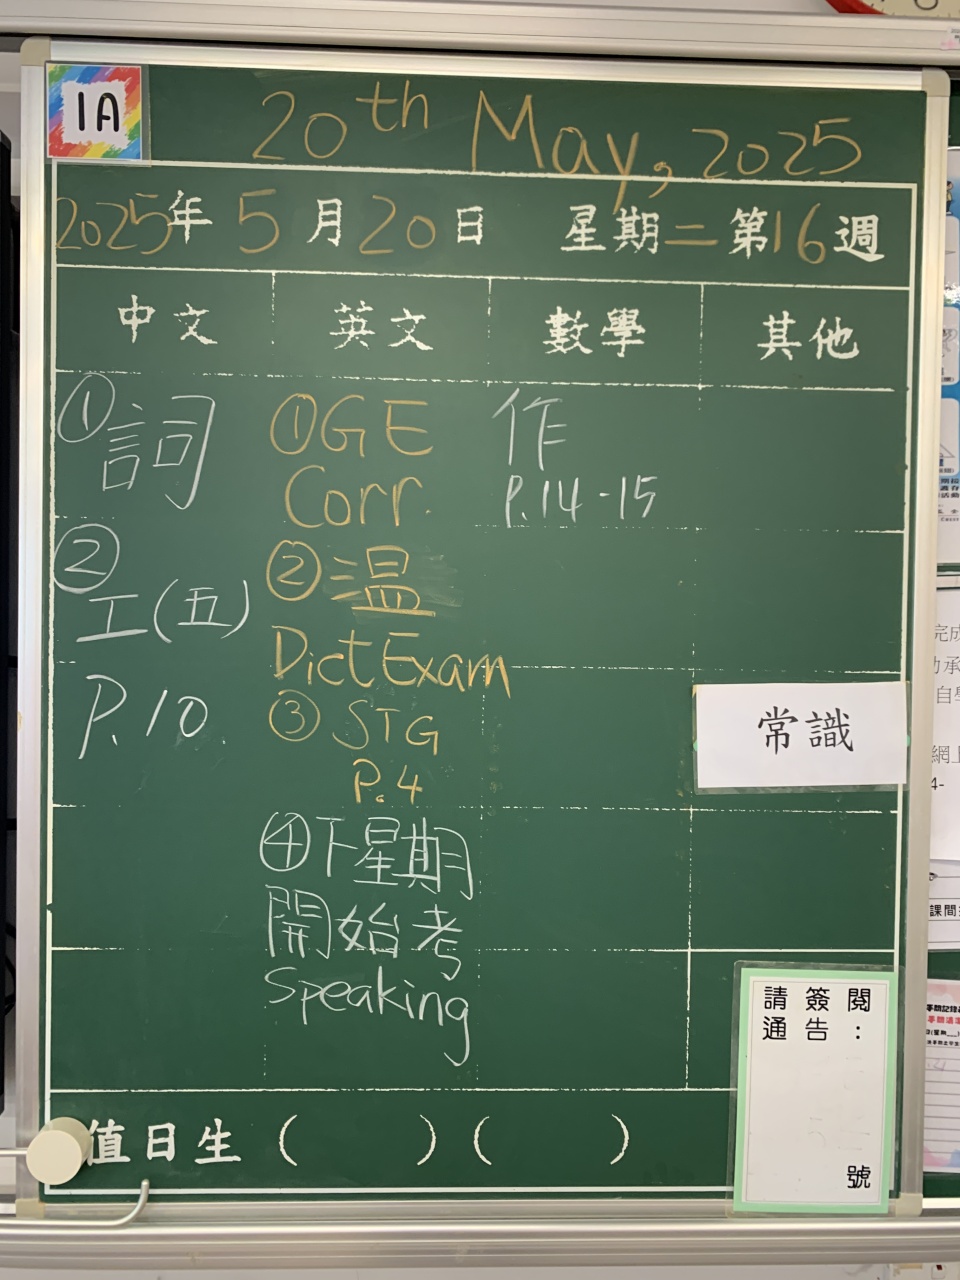 1A
20th May, 2025
2025年5月20日 星期二第16週
中文 英文 數學 其他
① 詞
② 工(五)
P.10.
① GE
Corr.
② 温
Dict Exam
③ STG
P.4
④ 下星期
開始考
Speaking
作
P.14-15
常識
請簽閱
通告：
號
值日生 ( ) ( )
完成
自學
網上
4-
課間